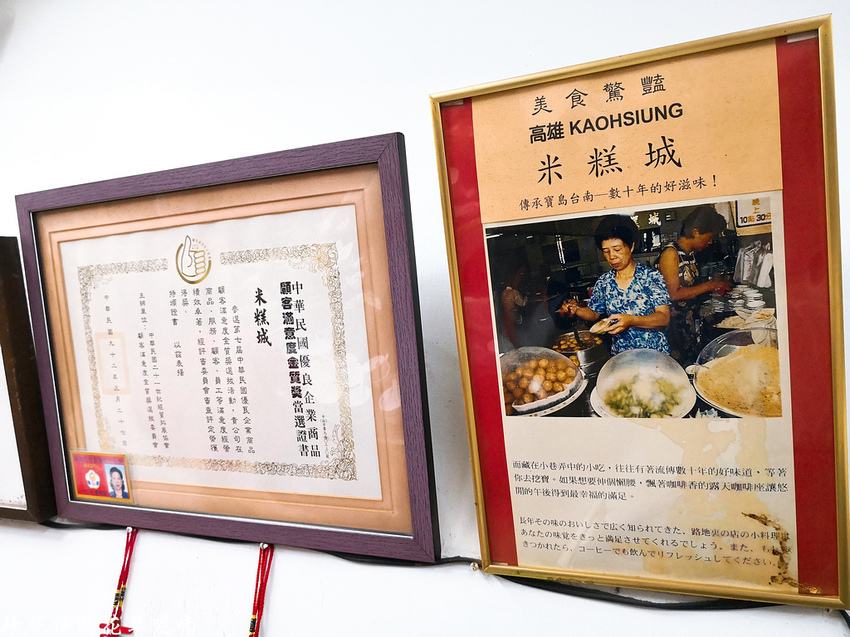 中華民國優良企業商品
顧客滿意度金質獎當選證書
米糕城
參選第七屆中華民國優良企業商品
顧客滿意度金質獎選拔活動,貴公司在
商品、服務、顧客、員工等滿意度經營
績效卓著,經評審委員會審查評定榮獲
得獎。
特頒證書 以茲表揚
中華民國九十二年三月二十九日
美食驚豔
高雄 KAOHSIUNG
米糕城
傳承寶島台南—數十年的好滋味!
晚上
10點30分
而藏在小巷弄中的小吃,往往有著流傳數十年的好味道,等著
你去挖寶。如果想要伸個懶腰,飄著咖啡香的露天咖啡座讓悠
閒的午後得到最幸福的滿足。
長年その味のおいしさで広く知られてきた、路地裏の店の小料理は
あなたの味覚をきっと満足させてくれるでしょう。また、も
きつかれたら、コーヒーでも飲んでリフレッシュしてください。